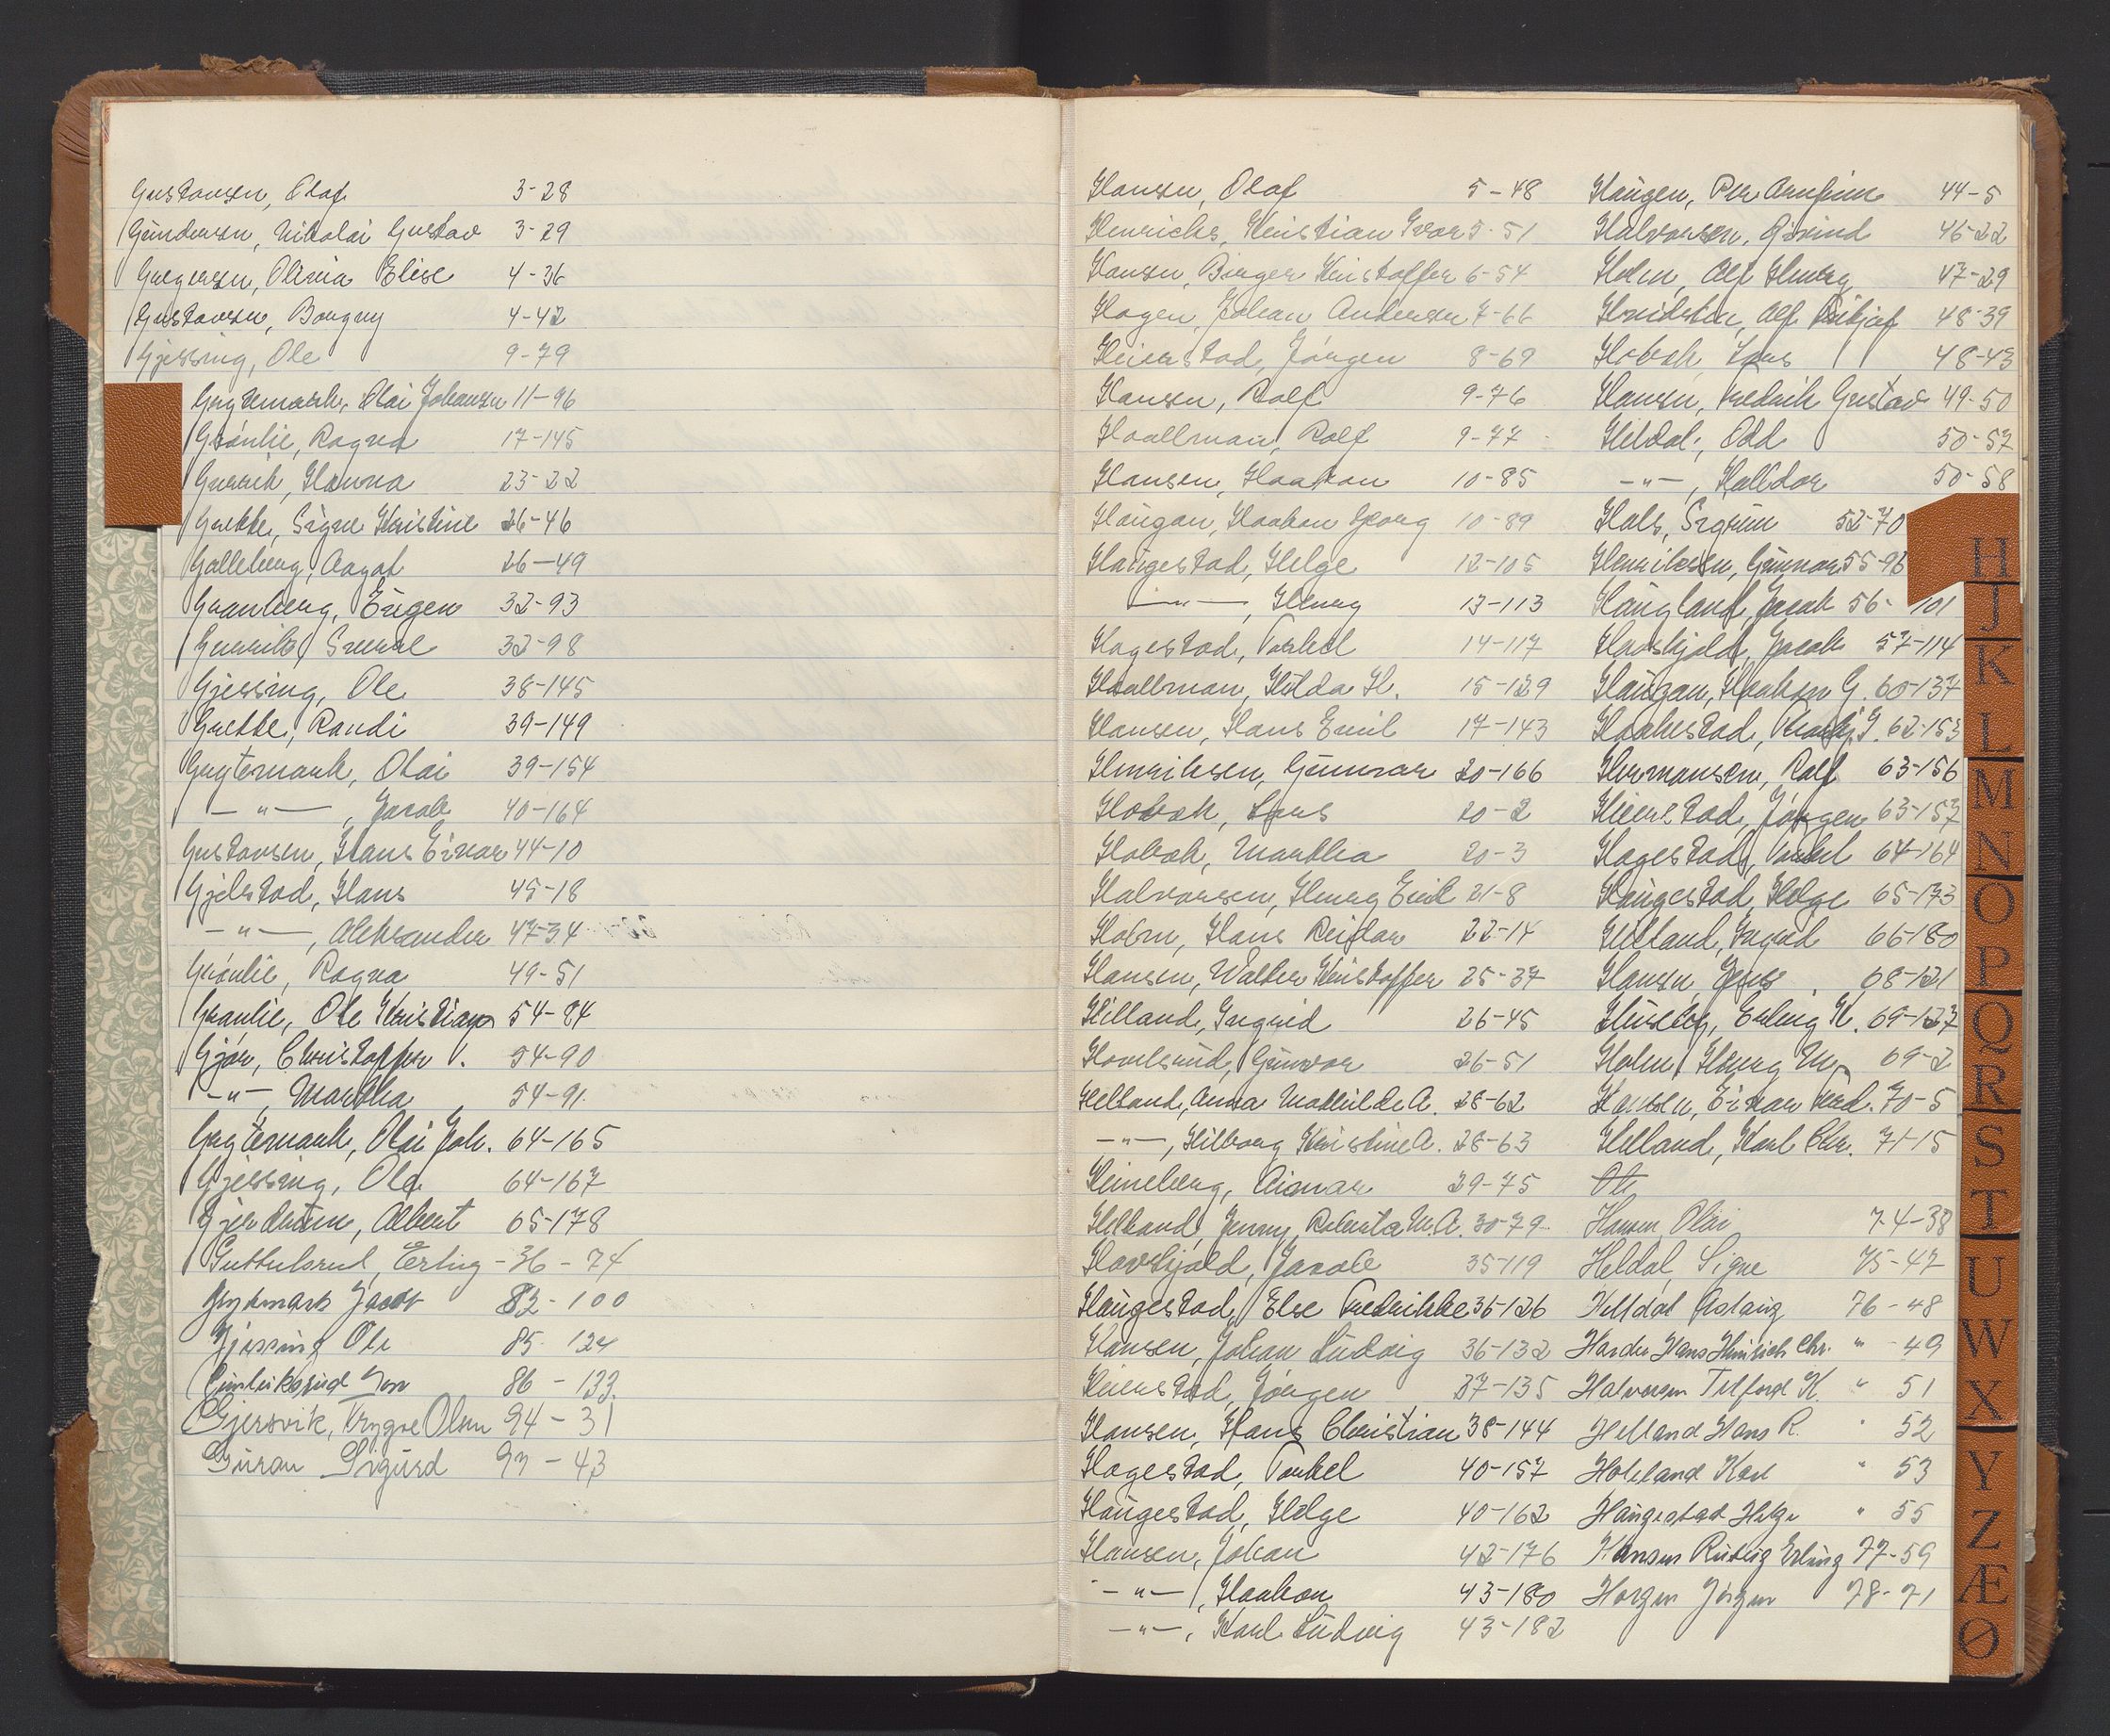 Gustavsen, Olaf 3-28
Gundersen, Nikolai Gustav 3-29
Gregersen, Olivia Elise 4-36
Gustavsen, Borgny 4-42
Gjessing, Ole 9-79
Grytemark, Olai Johansen 11-96
Grönlie, Ragna 17-145
Hanna 23-22
Grette, Signe Kristine 26-46
Galleberg, Aagot 26-49
Granberg, Eugen 32-93
32-98
Gjessing, Ole 38-145
Grette, Randi 39-149
Grytemark, Olai 39-154
-"-, Jacob 40-164
Gustavsen, Hans Einar 44-10
Gjelstad, Hans 45-18
-"-, Aleksander 47-34
Grönlie, Ragna 49-51
Granlie, Ole Kristian 54-84
Gjør, Christoffer V. 54-90
-"- Martha 54-91
Grytemark, Olai Joh. 64-165
Gjessing, Ole 64-167
Gjerdrum, Albert 65-178
Guttulsrud, Erling - 36 - 74
Grytemark Jacob 82-100
Gjessing Ole 85-124
86 - 133
Gjersvik, Trygve Olsen 94 - 31
Guran Sigurd 97 - 43
Hansen, Olaf 5-48
Henrichs, Kristian Ivar 5-51
Hansen, Birger Kristoffer 6-54
Hagen, Johan Andersen 7-66
Heierstad, Jörgen 8-69
Hansen, Rolf 9-76
Haallman, Rolf 9-77
Hansen, Haakon 10-85
Haugan, Haakon Georg 10-89
Haugestad, Helge 12-105
-"-, Henry 13-113
Hagestad, Torkel 14-117
Haallman, Hilda H. 15-129
Hansen, Hans Emil 17-143
Henriksen, Gunnar 20-166
Hobæk, Lars 20-2
Hobæk, Martha 20-3
Halvorsen, Henry Emil 21-8
Holm, Hans Reidar 22-14
Hansen, Walter Kristoffer 25-37
Helland, Ingrid 26-45
Gunvor 26-51
Helland, Anna Mathilde A. 28-62
-"-, Hilborg Kristine A. 28-63
Heineberg, Reimar 29-75
Helland, Jenny Roberta M.A. 30-79
Havskjold, Jacob 35-119
Haugestad, Else Fredrikke 35-126
Hansen, Johan Ludvig 36-132
Heierstad, Jörgen 37-135
Hansen, Hans Christian 38-144
Hagestad, Torkel 40-157
Haugestad, Helge 40-162
Hansen, Johan 42-176
-"-, Haakon 43-180
-"-, Karl Ludvig 43-182
Haugen, Per Arnfinn 44-5
Halvorsen, Eivind 46-22
Holm, Alf Henry 47-29
Alf 48-39
Hobæk, Lars 48-43
Hansen, Fredrik Gustav 49-50
Heldal, Odd 50-57
-"-, Halldor 50-58
Hals, Sigrun 52-70
Henriksen, Gunnar 55-96
Haugland, Jacob 56-101
Havskjold, Jacob 57-114
Haugan, Haakon G. 60-137
Haakestad, 62-153
Hermansen, Rolf 63-156
Heierstad, Jörgen 63-157
Hagestad, Torkel 64-164
Haugestad, Helge 65-173
Helland, Ingrid 66-180
Hansen, Jens 68-121
Huseby, Erling K. 69-127
Holm, Henry M. 69-2
Hansen, Einar Fred. 70-5
Helland, Karl Chr. 71-15
Hansen, Olai 74-38
Heldal, Signe 75-47
Helldal Aslaug 76-48
Harder Hans Hinrich Chr. " - 49
Halvorsen Telford K. " 51
Helland Hans R. " 52
Karl " 53
Haugestad Helge " 55
Hansen Rudvig Erling 77-59
Horgen Jörgen 78-71
H
J
K
L
M
N
O
P
Q
R
S
T
U
W
X
Y
Z
Æ
Ø